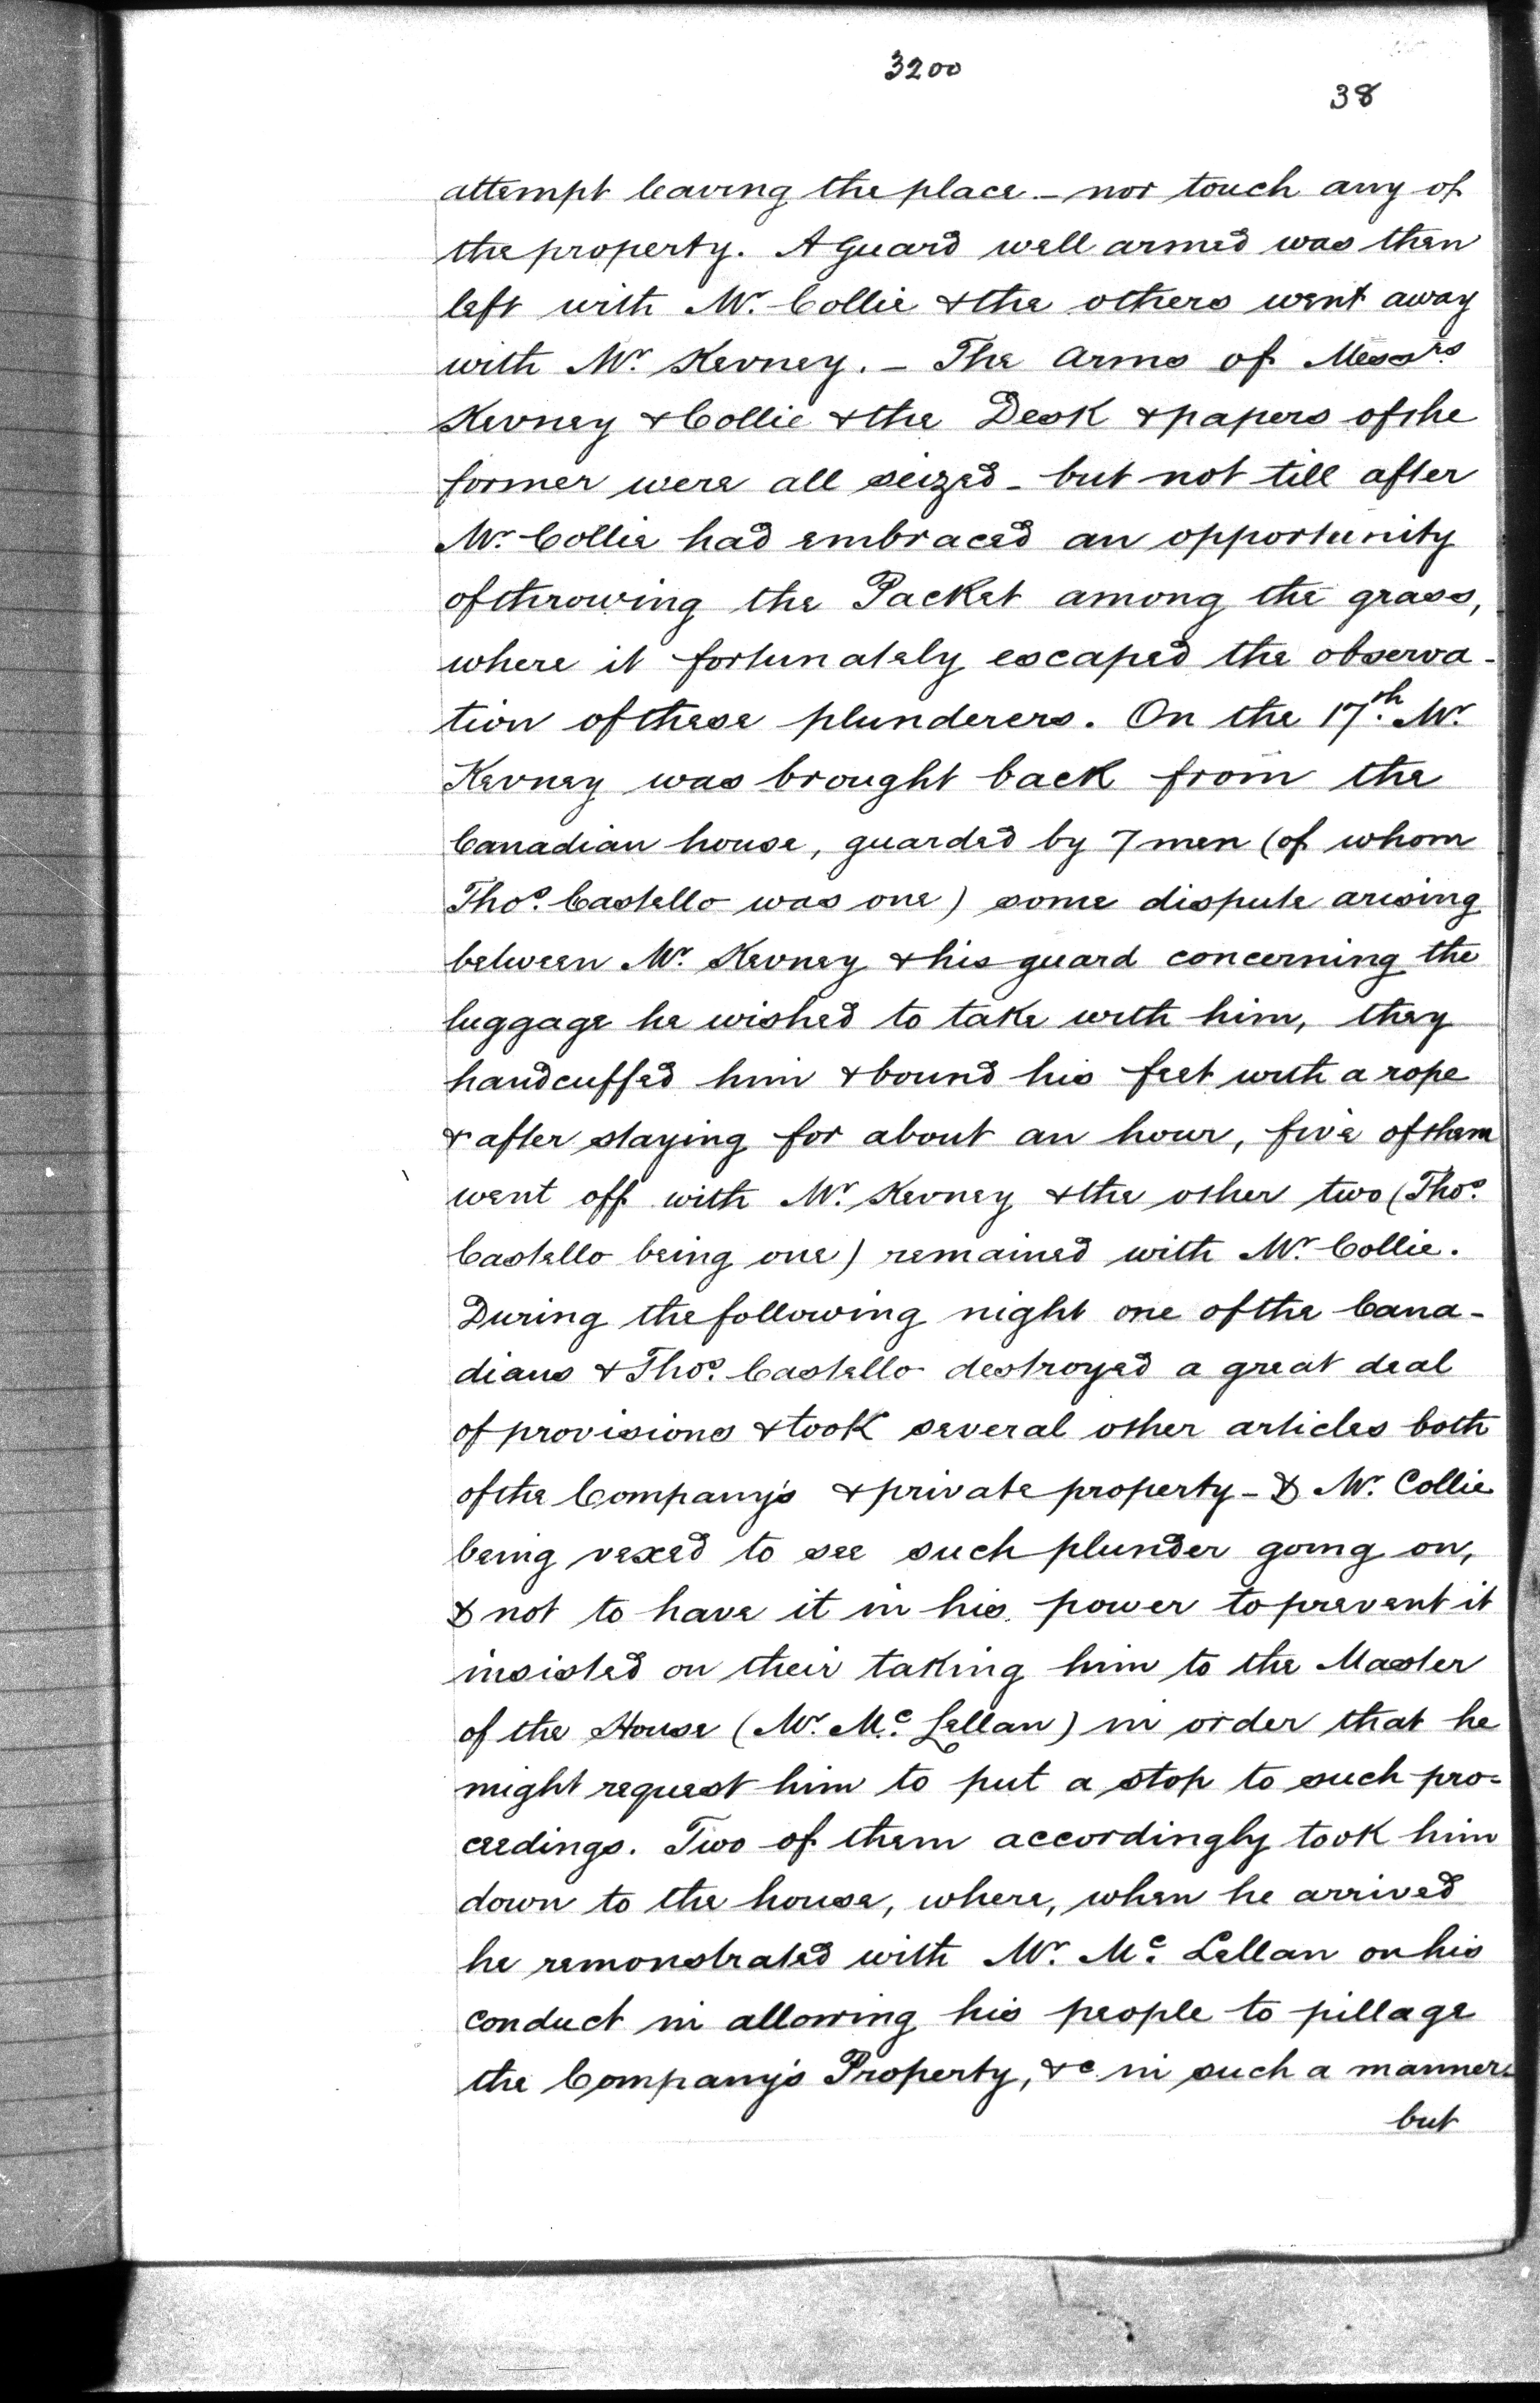 3200
38
attempt leaving the place. - nor touch any of
the property. A Guard well armed was then
left with Mr. Collie & the others went away
with Mr. Kevney. - The Arms of Messrs.
Kevney & Collie & the Desk & papers of the
former were all seized - but not till after
Mr. Collie had embraced an opportunity
of throwing the Packet among the grass,
where it fortunately escaped the observa-
tion of these plunderers. On the 17th. Mr.
Kevney was brought back from the
Canadian house, guarded by 7 men (of whom
Thos. Castello was one) some dispute arising
between Mr. Kevney & his guard concerning the
luggage he wished to take with him, they
handcuffed him & bound his feet with a rope
& after staying for about an hour, five of them
went off with Mr. Kevney & the other two (Thos.
Castello being one) remained with Mr. Collie.
During the following night one of the Cana-
dians & Thos. Castello destroyed a great deal
of provisions & took several other articles both
of the Company's & private property - & Mr. Collie
being vexed to see such plunder going on,
& not to have it in his power to prevent it
insisted on their taking him to the Master
of the House (Mr. Mc. Lellan) in order that he
might request him to put a stop to such pro=
ceedings. Two of them accordingly took him
down to the house, where, when he arrived
he remonstrated with Mr. Mc. Lellan on his
conduct in allowing his people to pillage
the Company's Property, &c in such a manner:
but